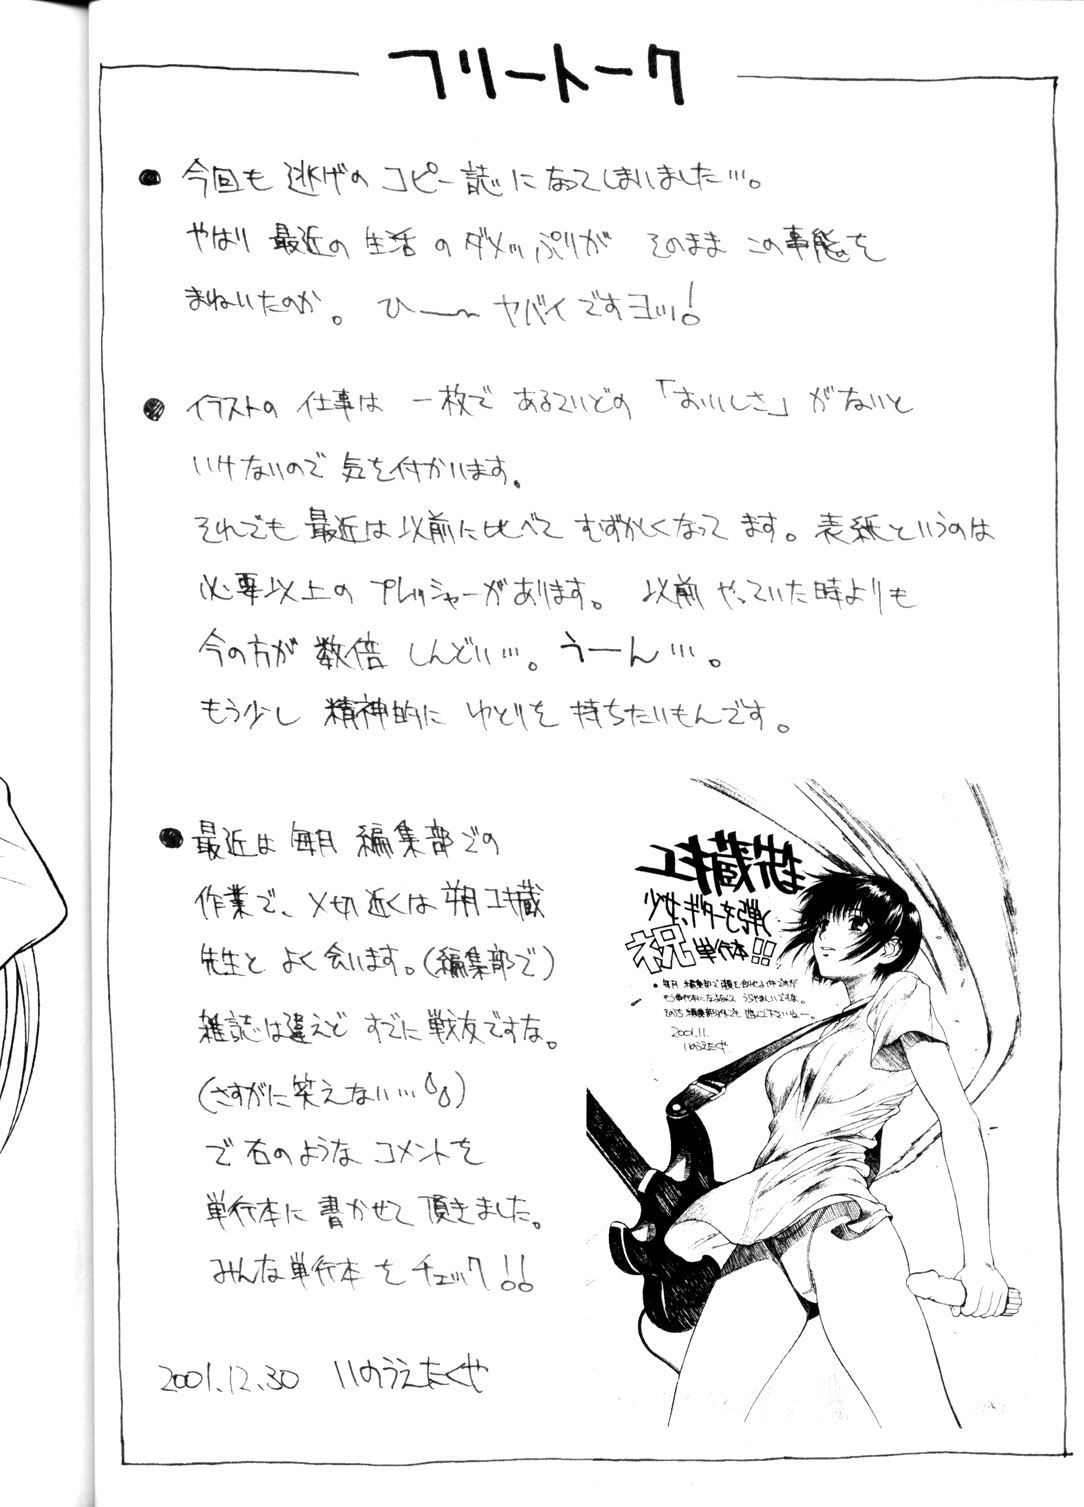 フリートーク
● 今回も 逃げの コピー誌に なってしまいました…。
やはり 最近の 生活 の ダメッぷりが そのまま この事態を
まねいたのか。 ひー〜 ヤバイですヨッ!
● イラストの 仕事は 一枚で あるていどの 「おいしさ」がないと
いけないので 気を付かいます。
それでも 最近は 以前に比べて むずかしくなって ます。表紙というのは
必要以上の プレッシャーがあります。 以前 やっていた時よりも
今の方が 数倍 しんどい…。うーん…。
もう少し 精神的に ゆとりを 持ちたいもんです。
● 最近は 毎月 編集部での
作業で、〆切近くは 朔ユキ蔵
先生と よく会います。(編集部で)
雑誌は違えど すでに 戦友ですな。
(さすがに笑えない…)
で 右のような コメントを
単行本に 書かせて 頂きました。
みんな単行本 を チェック!!
2001.12.30 いのうえたくや
ユキ蔵先生
少女、ギターを弾く
祝 単行本!!
● 毎月 編集部で顔を合わせる仲ですが
もう単行本になるなんて うらやましいですな。
2001.11.
いのうえたくや